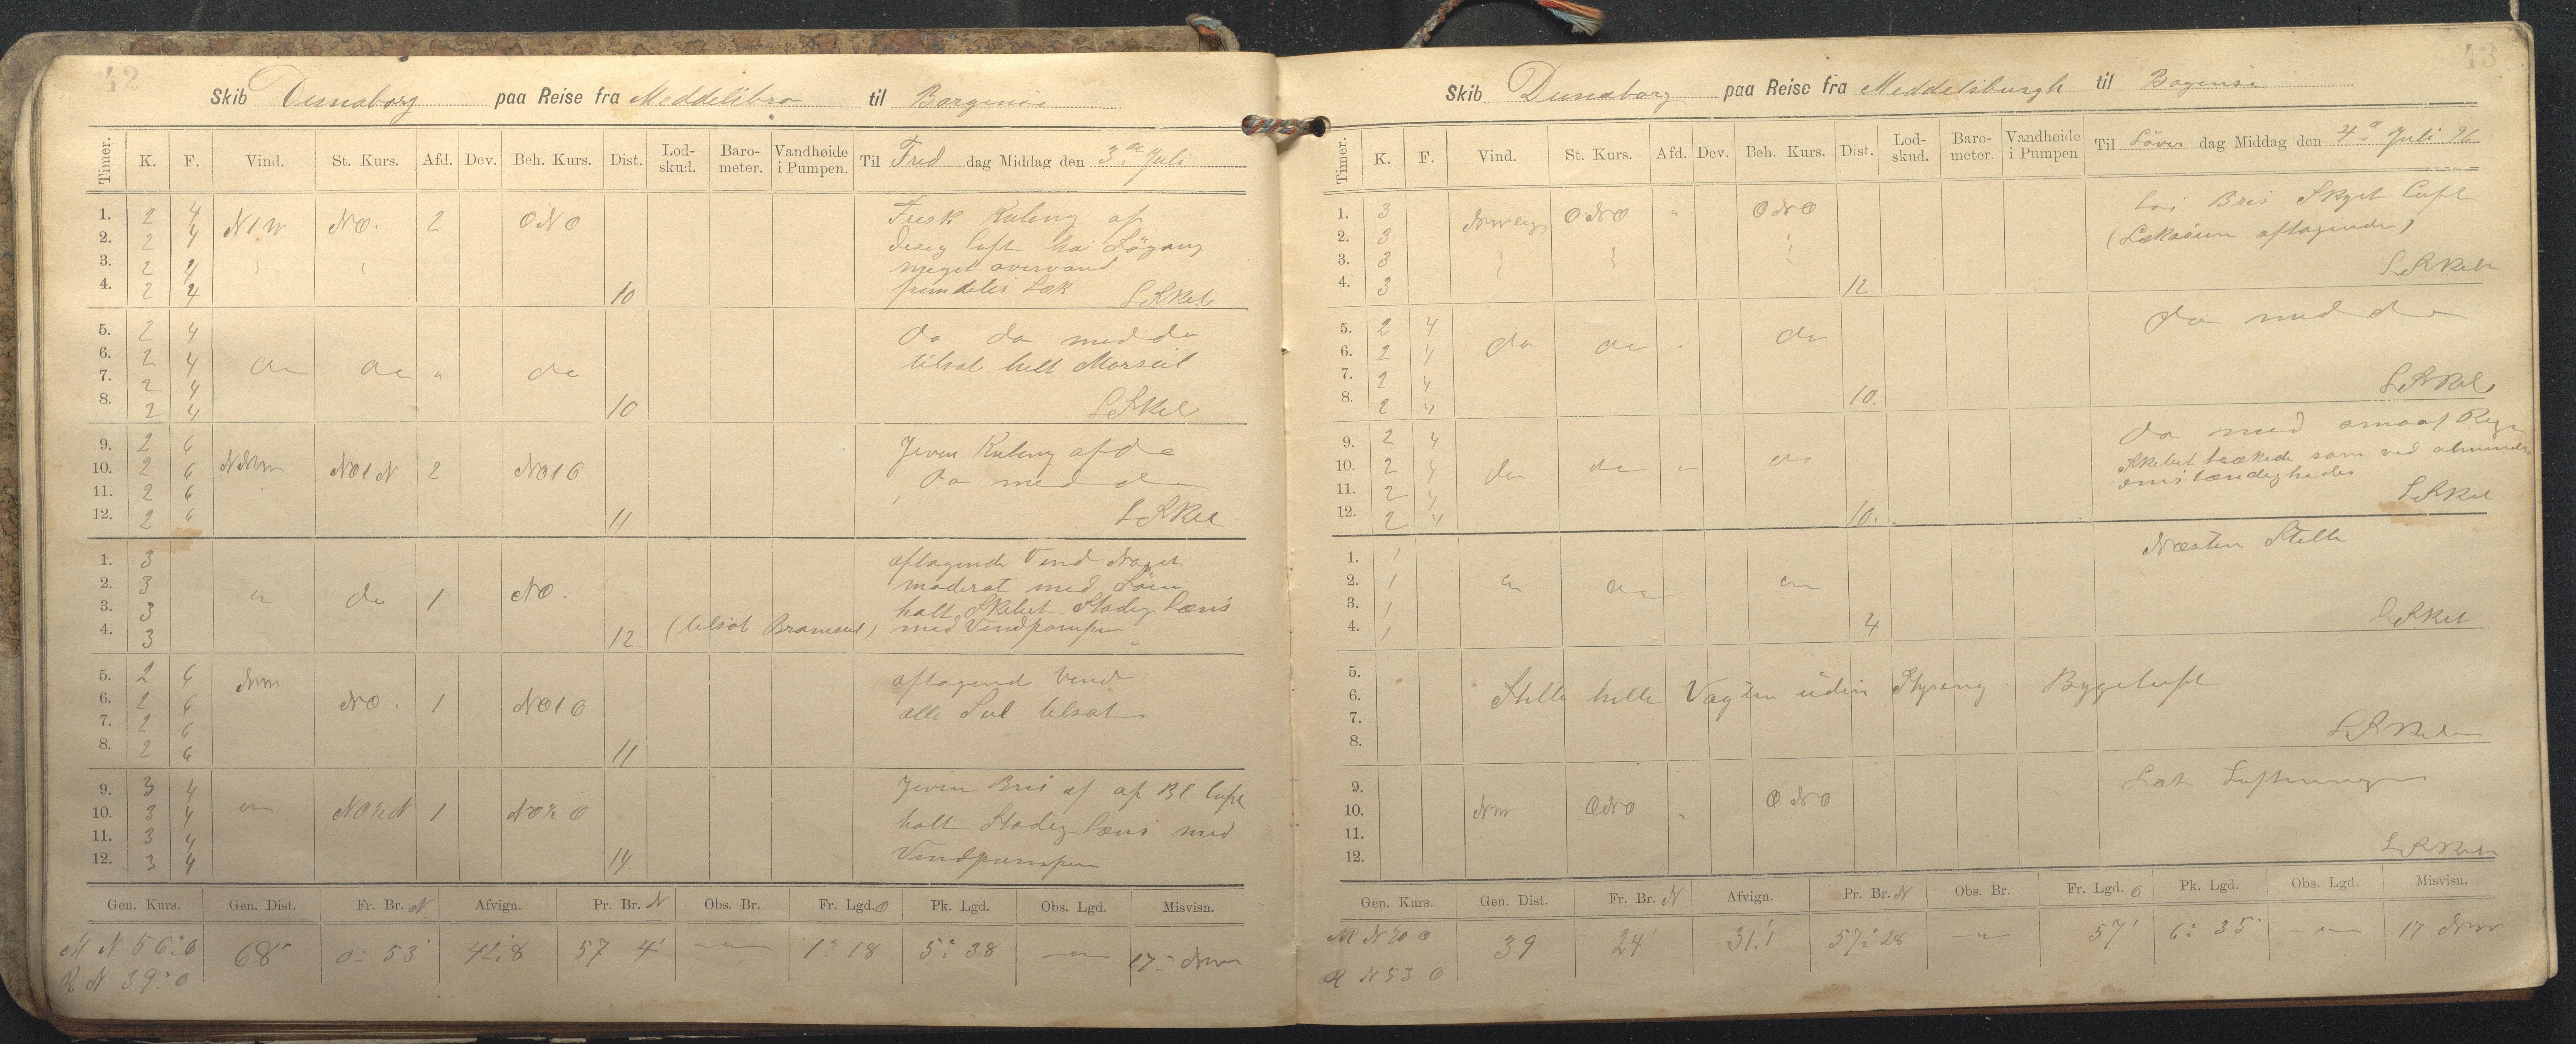 42
Skib Dunaborg paa Reise fra Meddelibro til Borgense
Timer. K. F. Vind. St. Kurs. Afd. Dev. Beh. Kurs. Dist. Lod-skud. Baro-meter. Vandhøide i Pumpen. Til Fred dag Middag den 3. Juli
1. 2 4 N1W NO. 2 ONO Frisk Kuling af
2. 2 4 disig luft høi Søgang
3. 2 4 meget overvand
4. 2 4 10 fremdeles Læk
5. 2 4 do do med do
6. 2 4 do do " do tilsat helt Morseil
7. 2 4
8. 2 4 10
9. 2 6 Jevn Kuling af do
10. 2 6 NNW NO1N 2 NO1O do med do
11. 2 6
12. 2 6 11
1. 3 aftagende Vind Noget
2. 3 do 1 NO. moderat med Søen
3. 3 holt Skibet Stadig Læns
4. 3 12 (tilsat Bramseil) med Vindpompen
5. 2 6 NW aftagend Vind
6. 2 6 NO. 1 NO1O alle Seil tilsat
7. 2 6
8. 2 6 11
9. 3 4 Jevn Bris af af Bl luft
10. 3 4 1 holt Stadig læns med
11. 3 4 Vindpumpen
12. 3 4 14.
Gen. Kurs. Gen. Dist. Fr. Br. N Afvign. Pr. Br. N Obs. Br. Fr. Lgd. O Pk. Lgd. Obs. Lgd. Misvisn.
M N 56° O 68 0° 53' 42.8 57 4' 1° 18 5° 38 17° NW
R N 39° O
43
Skib Dunaborg paa Reise fra Meddelsburgh til Bogense
Timer. K. F. Vind. St. Kurs. Afd. Dev. Beh. Kurs. Dist. Lod-skud. Baro-meter. Vandhøide i Pumpen Til Löver dag Middag den 4. Juli 96
1. 3 ONO " ONO Bris Skyet Luft
2. 3 (Lækasien aftagende)
3. 3
4. 3 12
5. 2 4 do med do
6. 2 4 do do do
7. 2 4
8. 2 4 10.
9. 2 4 do med smaat Regn
10. 2 4 do do do Skibet lækede som ved almindelig
11. 2 4 omstændigheder
12. 2 4 10.
1. 1 Næsten Stelle
2. 1
3. 1
4. 1 4
5.
6. Stille hele Vagten uden Styreng. Bygeluft
7.
8.
9. Læt Luftning
10. NW ONO ONO
11.
12.
Gen. Kurs. Gen. Dist. Fr. Br. N Afvign. Pr. Br. N Obs. Br. Fr. Lgd. O Pk. Lgd. Obs. Lgd. Misvisn.
M N 70 O 39 24' 31.1 57° 28 57' 6° 35 17 NW
R N 53 O